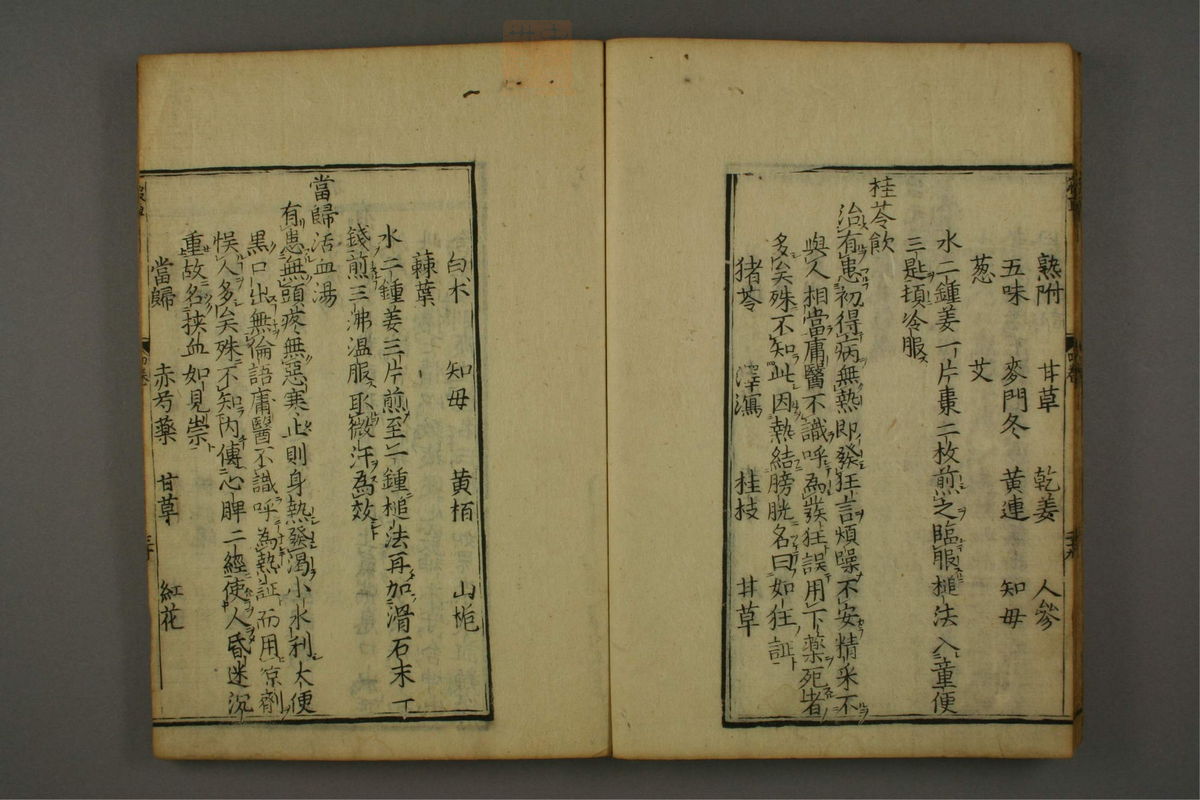 熟附　甘草　乾姜　人參
五味　麥門冬　黄連　知毋
葱　艾
水二鍾姜一片棗二枚煎之臨服槌法入童便
三匙頓冷服
桂苓飲
治有患初得病無熱即發狂言煩躁不安精采不
與人相當庸醫不識呼為發狂誤用下藥死者
多矣殊不知此因熱結膀胱名曰如狂証
猪苓　澤瀉　桂枝　甘草
白朮　知毋　黄栢　山梔
蒜葉
水二鍾姜三片煎至一鍾槌法再加滑石末一
錢煎三沸温服取微汗為效
當歸活血湯
有患無頭疼無惡寒止則身熱發渇小水利大便
黒口出無倫語庸醫不識呼為熱証而用凉劑
悞人多矣殊不知内傳心脾二經使人昏迷沉
重故名挟血如見祟
當歸　赤芍藥　甘草　紅花